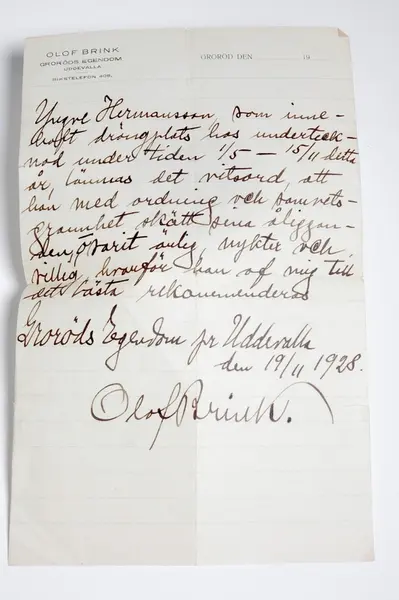 OLOF BRINK
GRORÖDS EGENDOM
UDDEVALLA
RIKSTELEFON 408.
GRORÖD DEN 19
Yngve Hermansson, som inne-
haft drängplats hos underteck-
nad under tiden 1/5 – 15/11 detta
år, lämnas det vitsord, att
han med ordning och samvets-
grannhet skött sina åliggan-
den, varit ärlig, nykter och
villig, hvarför han af mig till
det bästa rekommenderas
Groröds Egendom pr Uddevalla
den 19/11 1928.
Olof Brink.